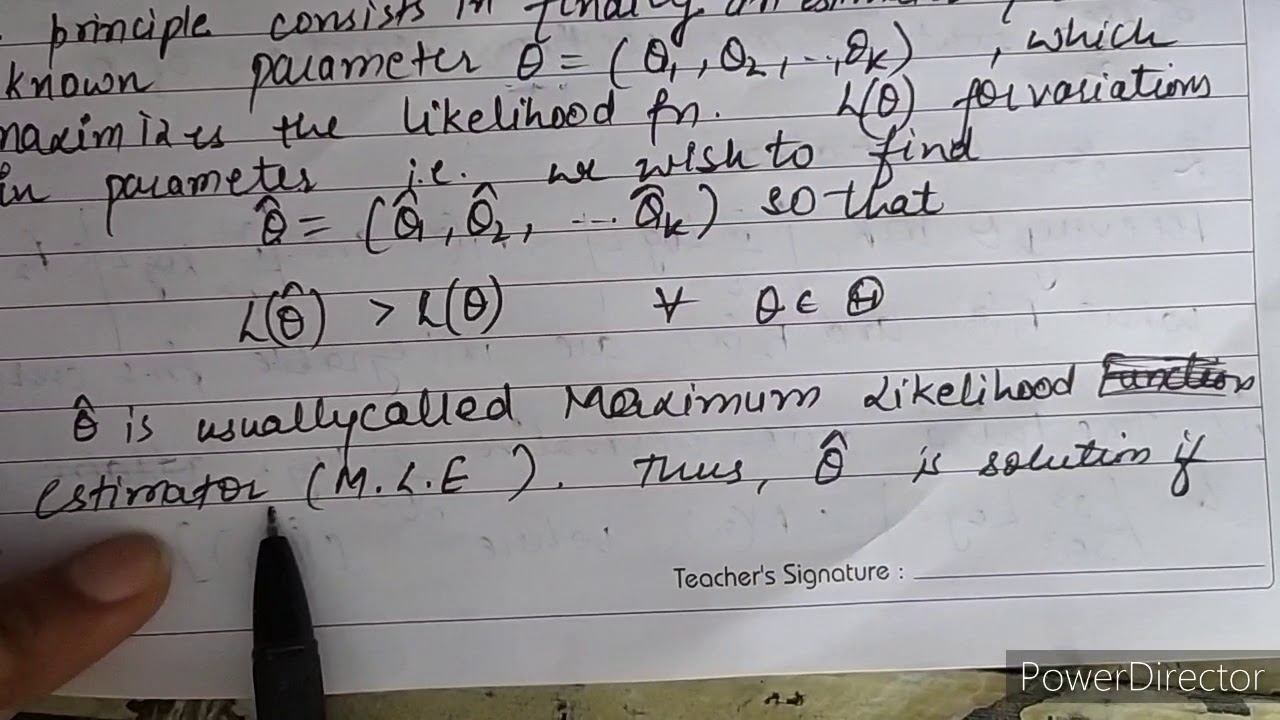 principle consists in finding an
known parameter θ = (θ₁, θ₂, ..., θₖ), which
maximizes the likelihood fn. L(θ) for variations
in parameter i.e. we wish to find
θ̂ = (θ̂₁, θ̂₂, ... θ̂ₖ) so that
L(θ̂) > L(θ) ∀ θ ∈ Θ
θ̂ is usually called Maximum Likelihood Function
estimator (M.L.E). Thus, θ̂ is solution if
Teacher's Signature :
PowerDirector